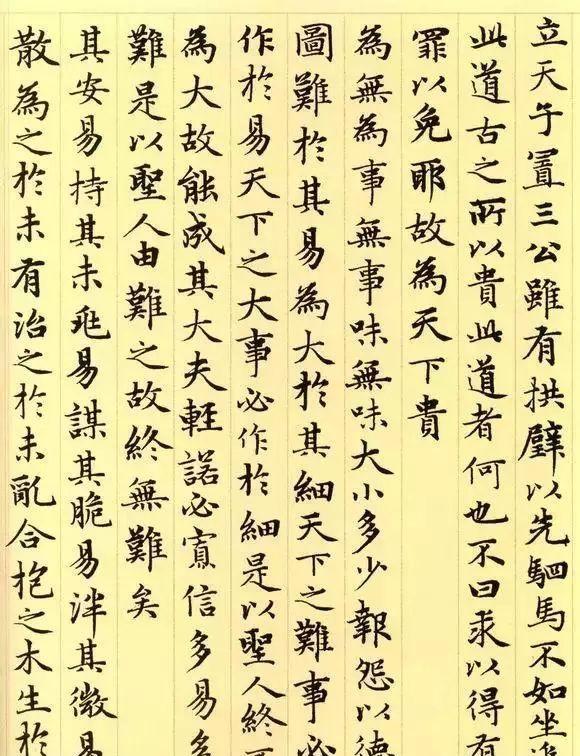 立天子置三公雖有拱璧以先駟馬不如坐
此道古之所以貴此道者何也不曰求以得有
罪以免耶故為天下貴
為無為事無事味無味大小多少報怨以德
圖難於其易為大於其細天下之難事必
作於易天下之大事必作於細是以聖人終
為大故能成其大夫輕諾必寡信多易多
難是以聖人由難之故終無難矣
其安易持其未兆易謀其脆易泮其微易
散為之於未有治之於未亂合抱之木生於